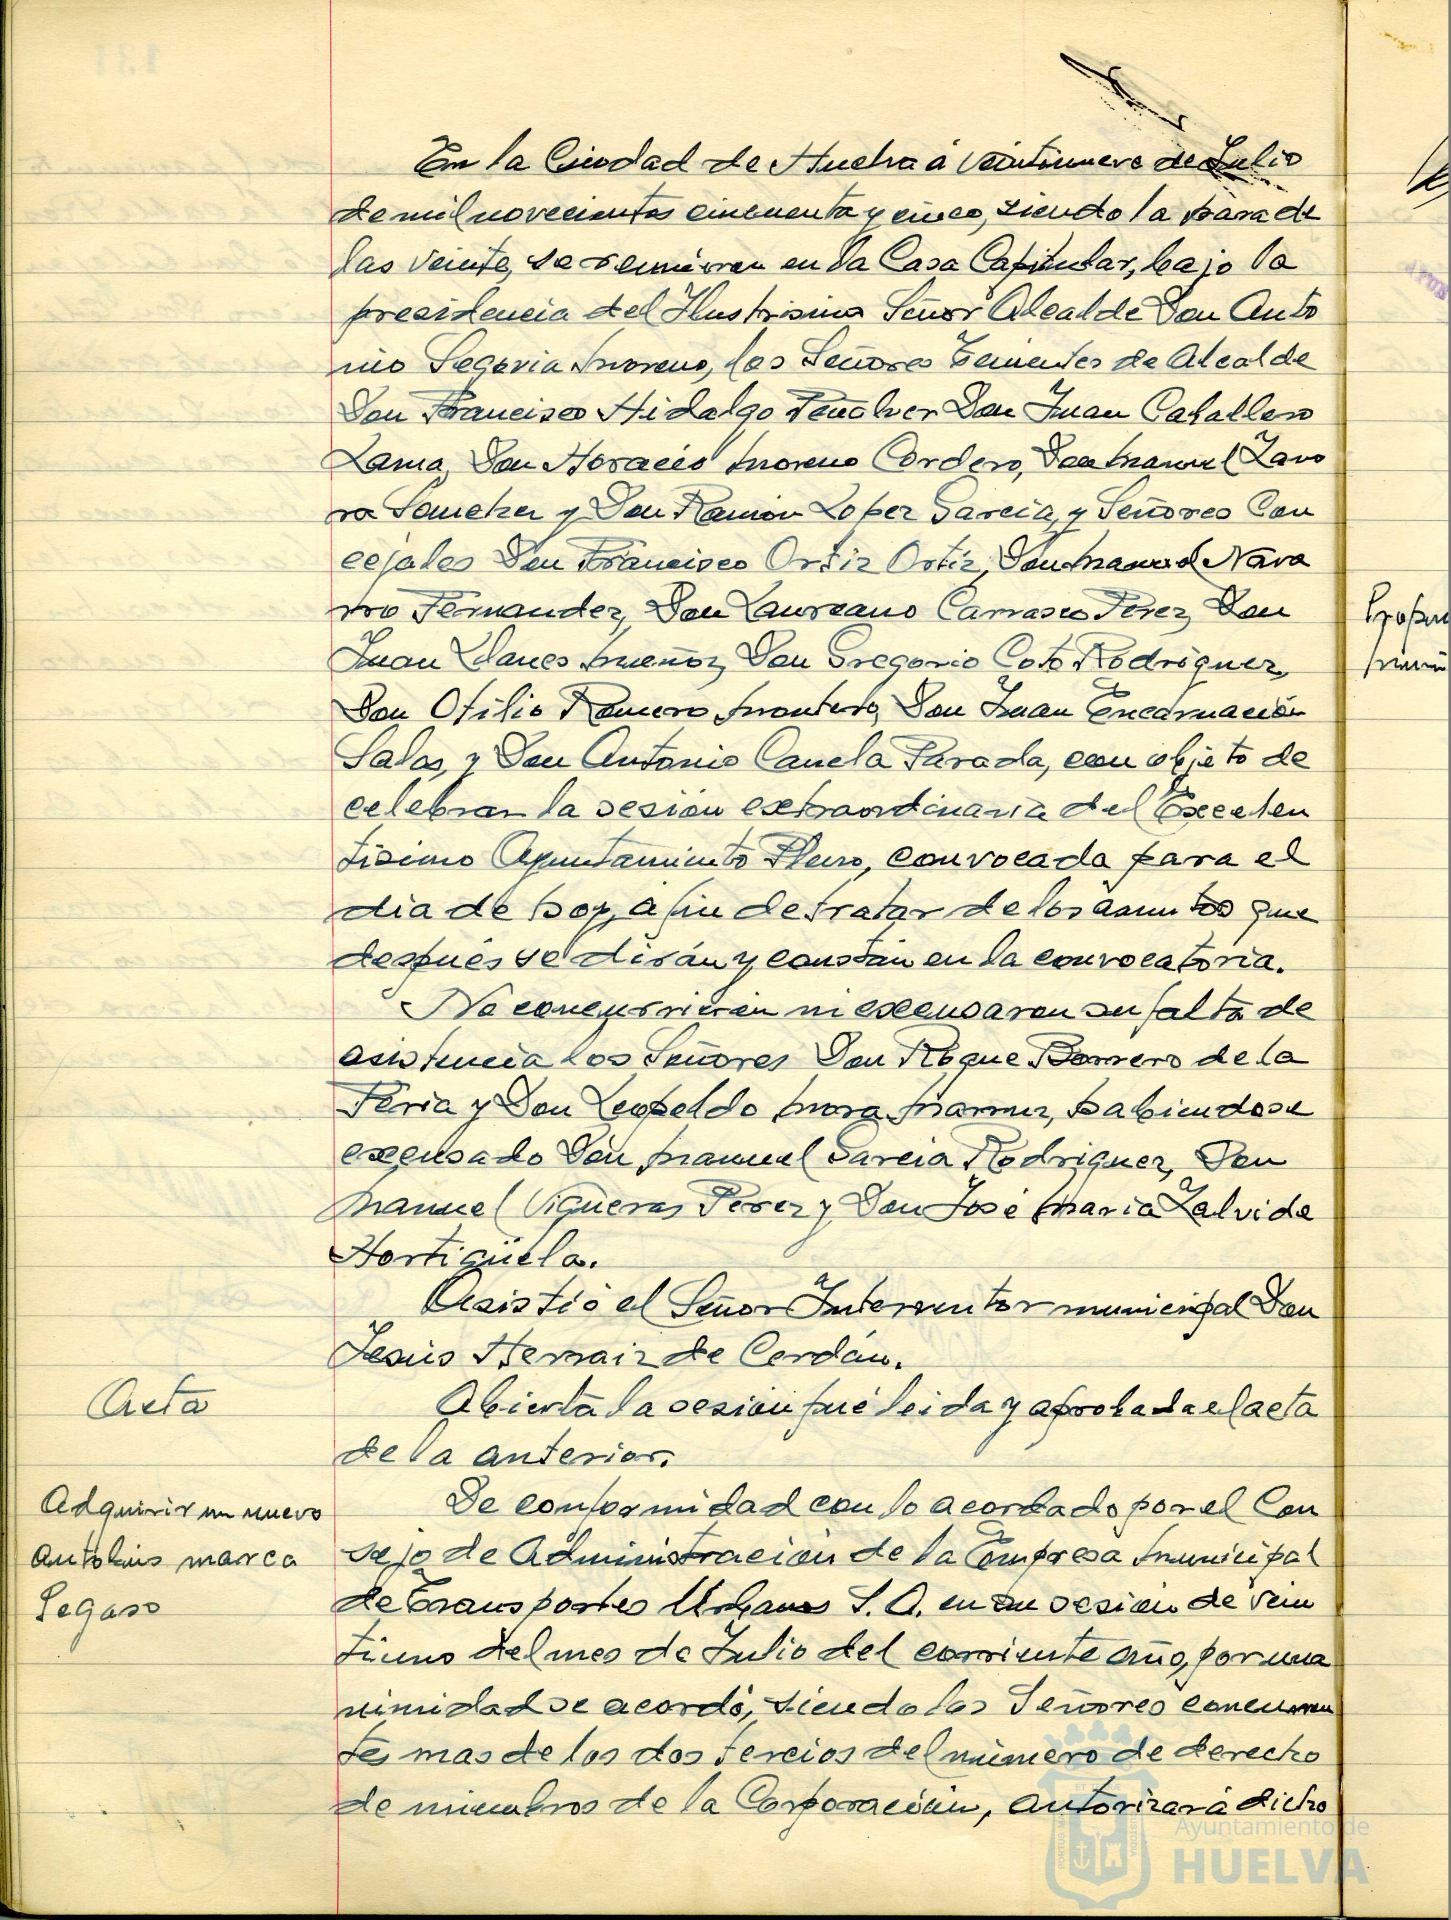 En la Ciudad de Huelva á veintinueve de Julio
de mil novecientos cincuenta y cinco, siendo la hora de
las veinte, se reunieron en la Casa Capitular, bajo la
presidencia del Ilustrisimo Señor Alcalde Don Anto
nio Segovia Moreno, los Señores Tenientes de Alcalde
Don Francisco Hidalgo Peñalver Don Juan Caballero
Lama, Don Horacio Moreno Cordero, Don Manuel Zamo
ra Sanchez y Don Ramón Lopez García, y Señores Con
cejales Don Francisco Ortiz Ortiz, Don Manuel Nava
rro Fernandez, Don Laureano Carrasco Perez, Don
Juan Llanes Muñoz, Don Gregorio Coto Rodríguez,
Don Otilio Romero Montero, Don Juan Encarnación
Salas, y Don Antonio Canela Parada, con objeto de
celebrar la sesión extraordinaria del Excelen
tísimo Ayuntamiento Pleno, convocada para el
dia de hoy, á fin de tratar de los asuntos que
después se dirán y constan en la convocatoria.
No concurrieron ni excusaron su falta de
asistencia los Señores Don Roque Barrero de la
Feria y Don Leopoldo Mora, habiendose
excusado Don Manuel García Rodriguez, Don
Manuel Vigueras Perez y Don José María Zalvide
Hortigüela.
Asistió el Señor Interventor municipal Don
Jesús Hernaiz de Cerdán.
Acta
Abierta la sesión fué leida y aprobada el acta
de la anterior.
Adquirir un nuevo
autobús marca
Pegaso
De conformidad con lo acordado por el Con
sejo de Administración de la Empresa Municipal
de Transportes Urbanos S. A. en su sesión de vein
tiuno del mes de Julio del corriente año, por una
nimidad se acordó, siendo los Señores concurren
tes mas de los dos tercios del número de derecho
de miembros de la Corporación, autorizará dicho
Ayuntamiento de
HUELVA